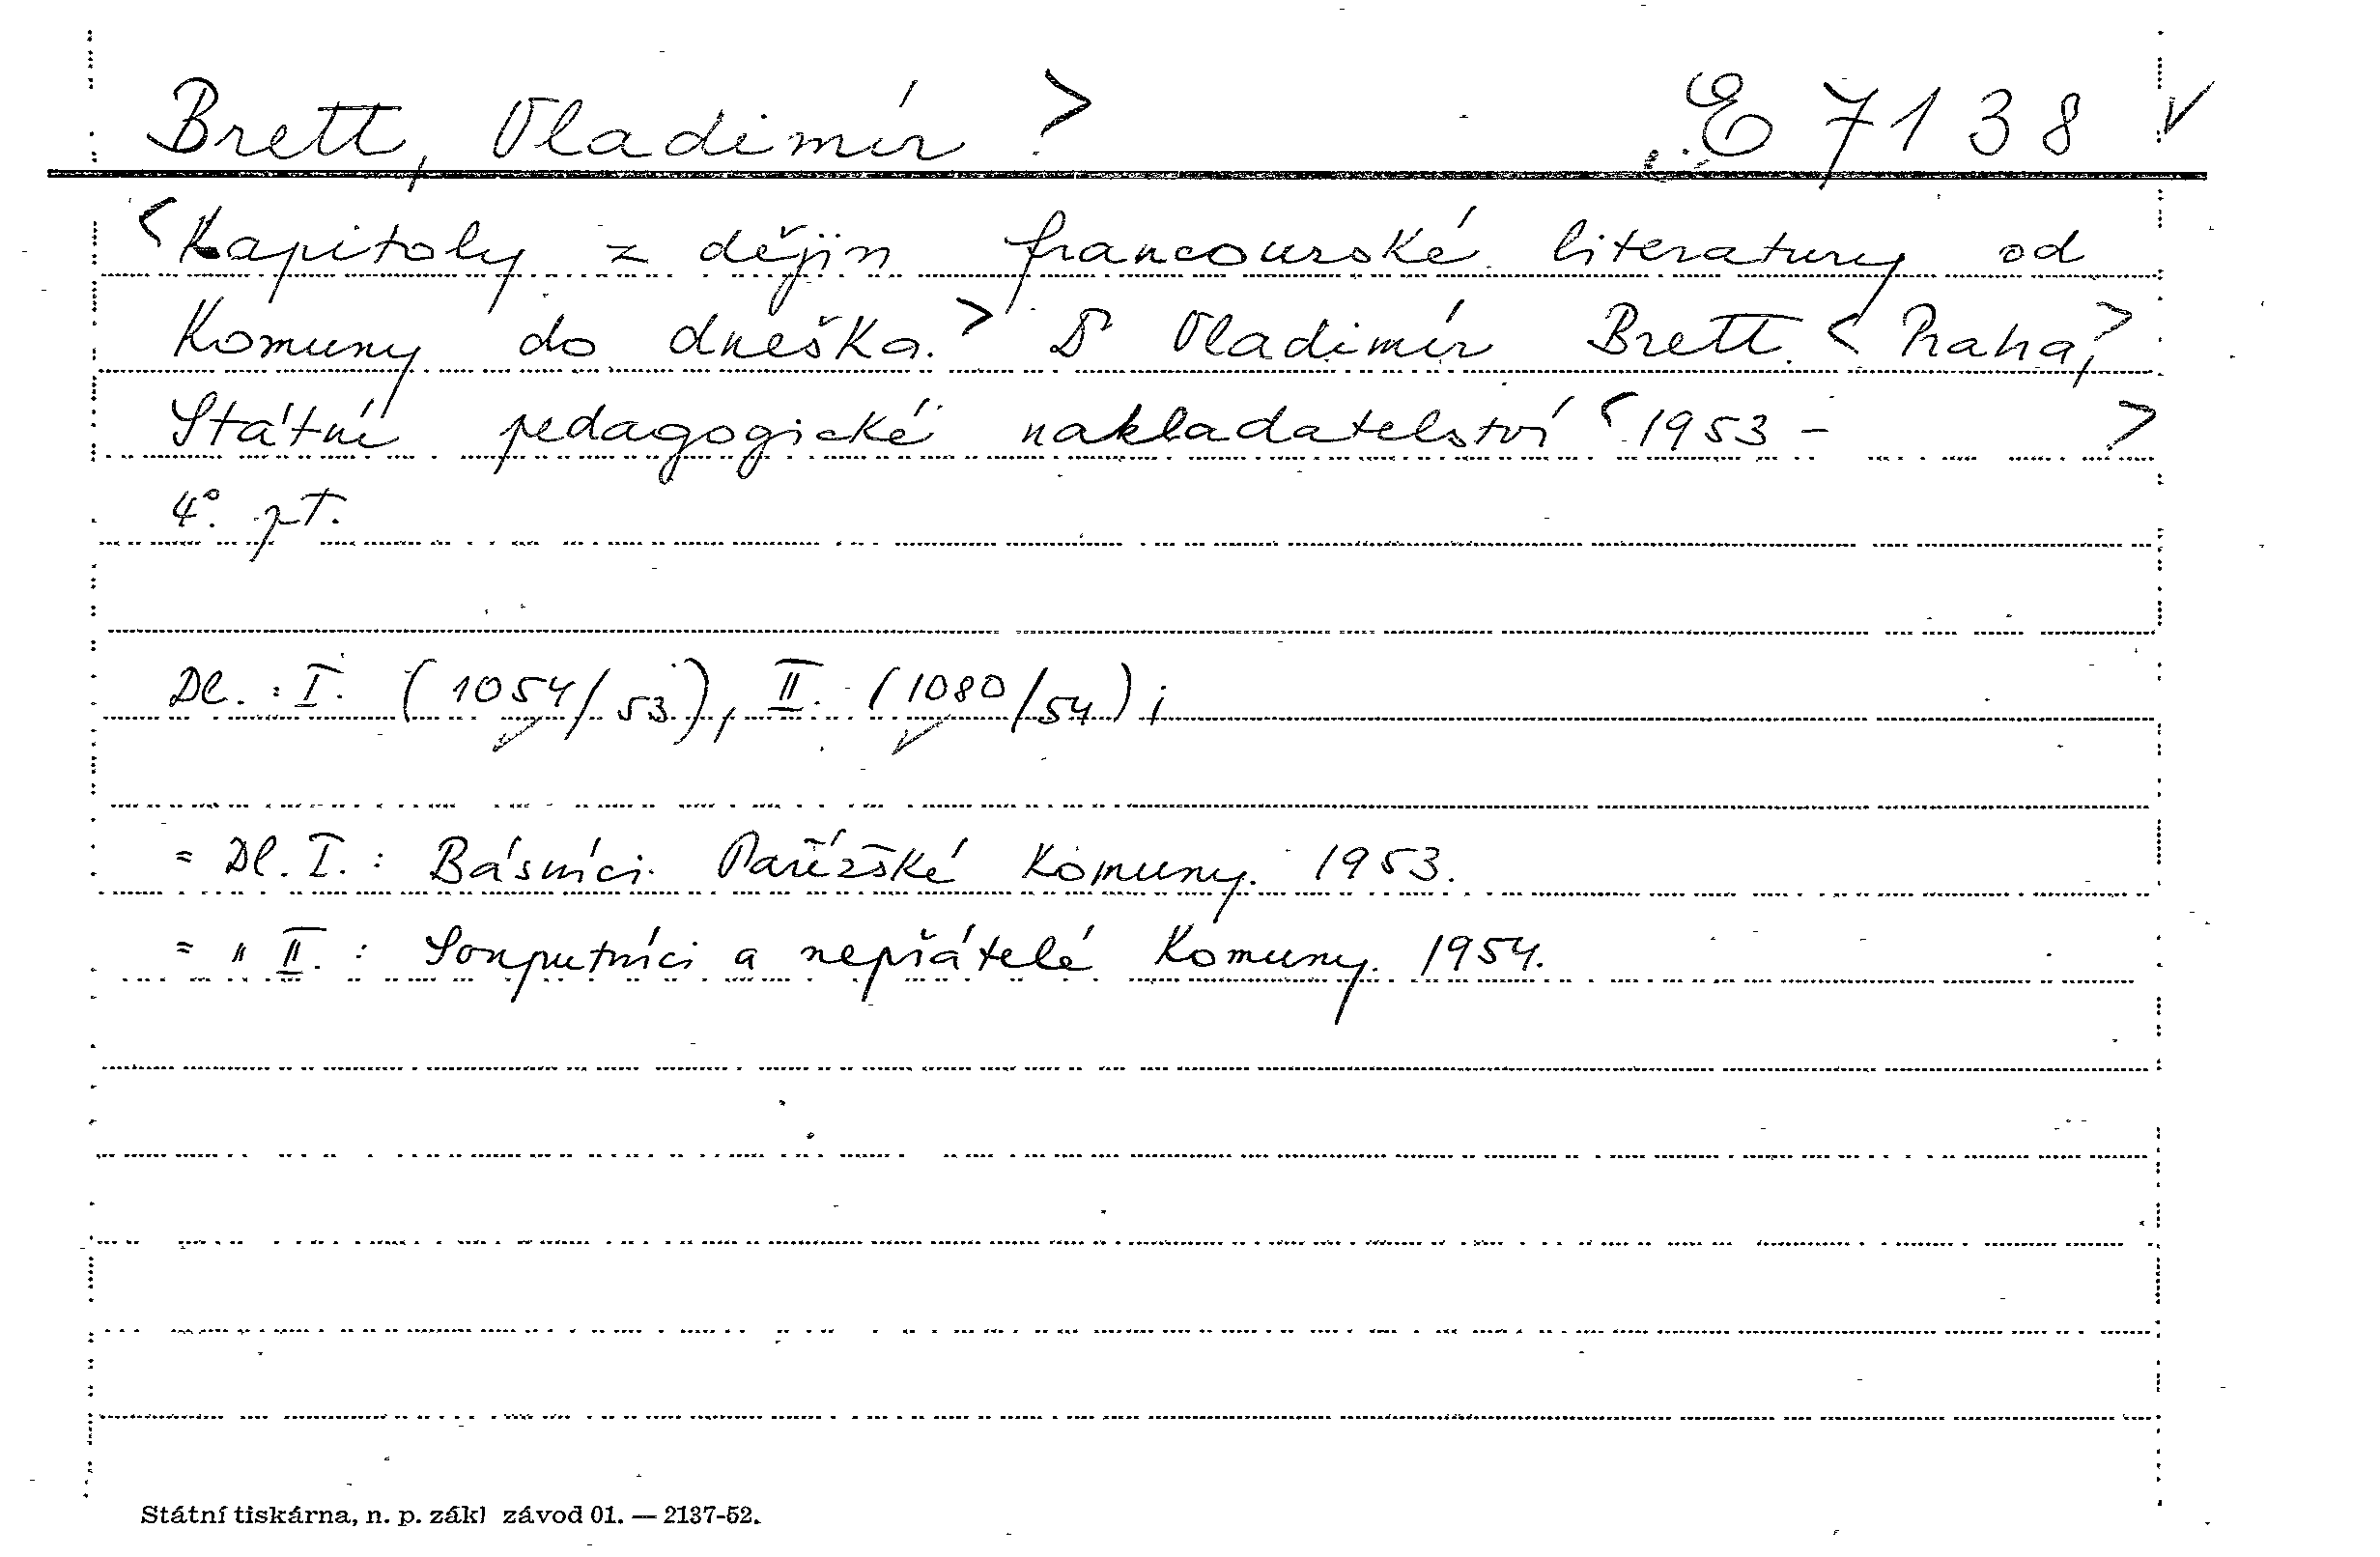 Brett, Vladimír > E 7138 ✓
<Kapitoly z dějin francouzské literatury od
Komuny do dneška.> Vladimír Brett. <Praha,>
Státní pedagogické nakladatelství <1953 - >
4°. pt.
Dl. : I. (1054/53), II. (1080/54);
= Dl. I. : Básníci Pařížské Komuny. 1953.
= " II. : Souputníci a nepřátelé Komuny. 1954.
Státní tiskárna, n. p. zákl závod 01. — 2137-52.